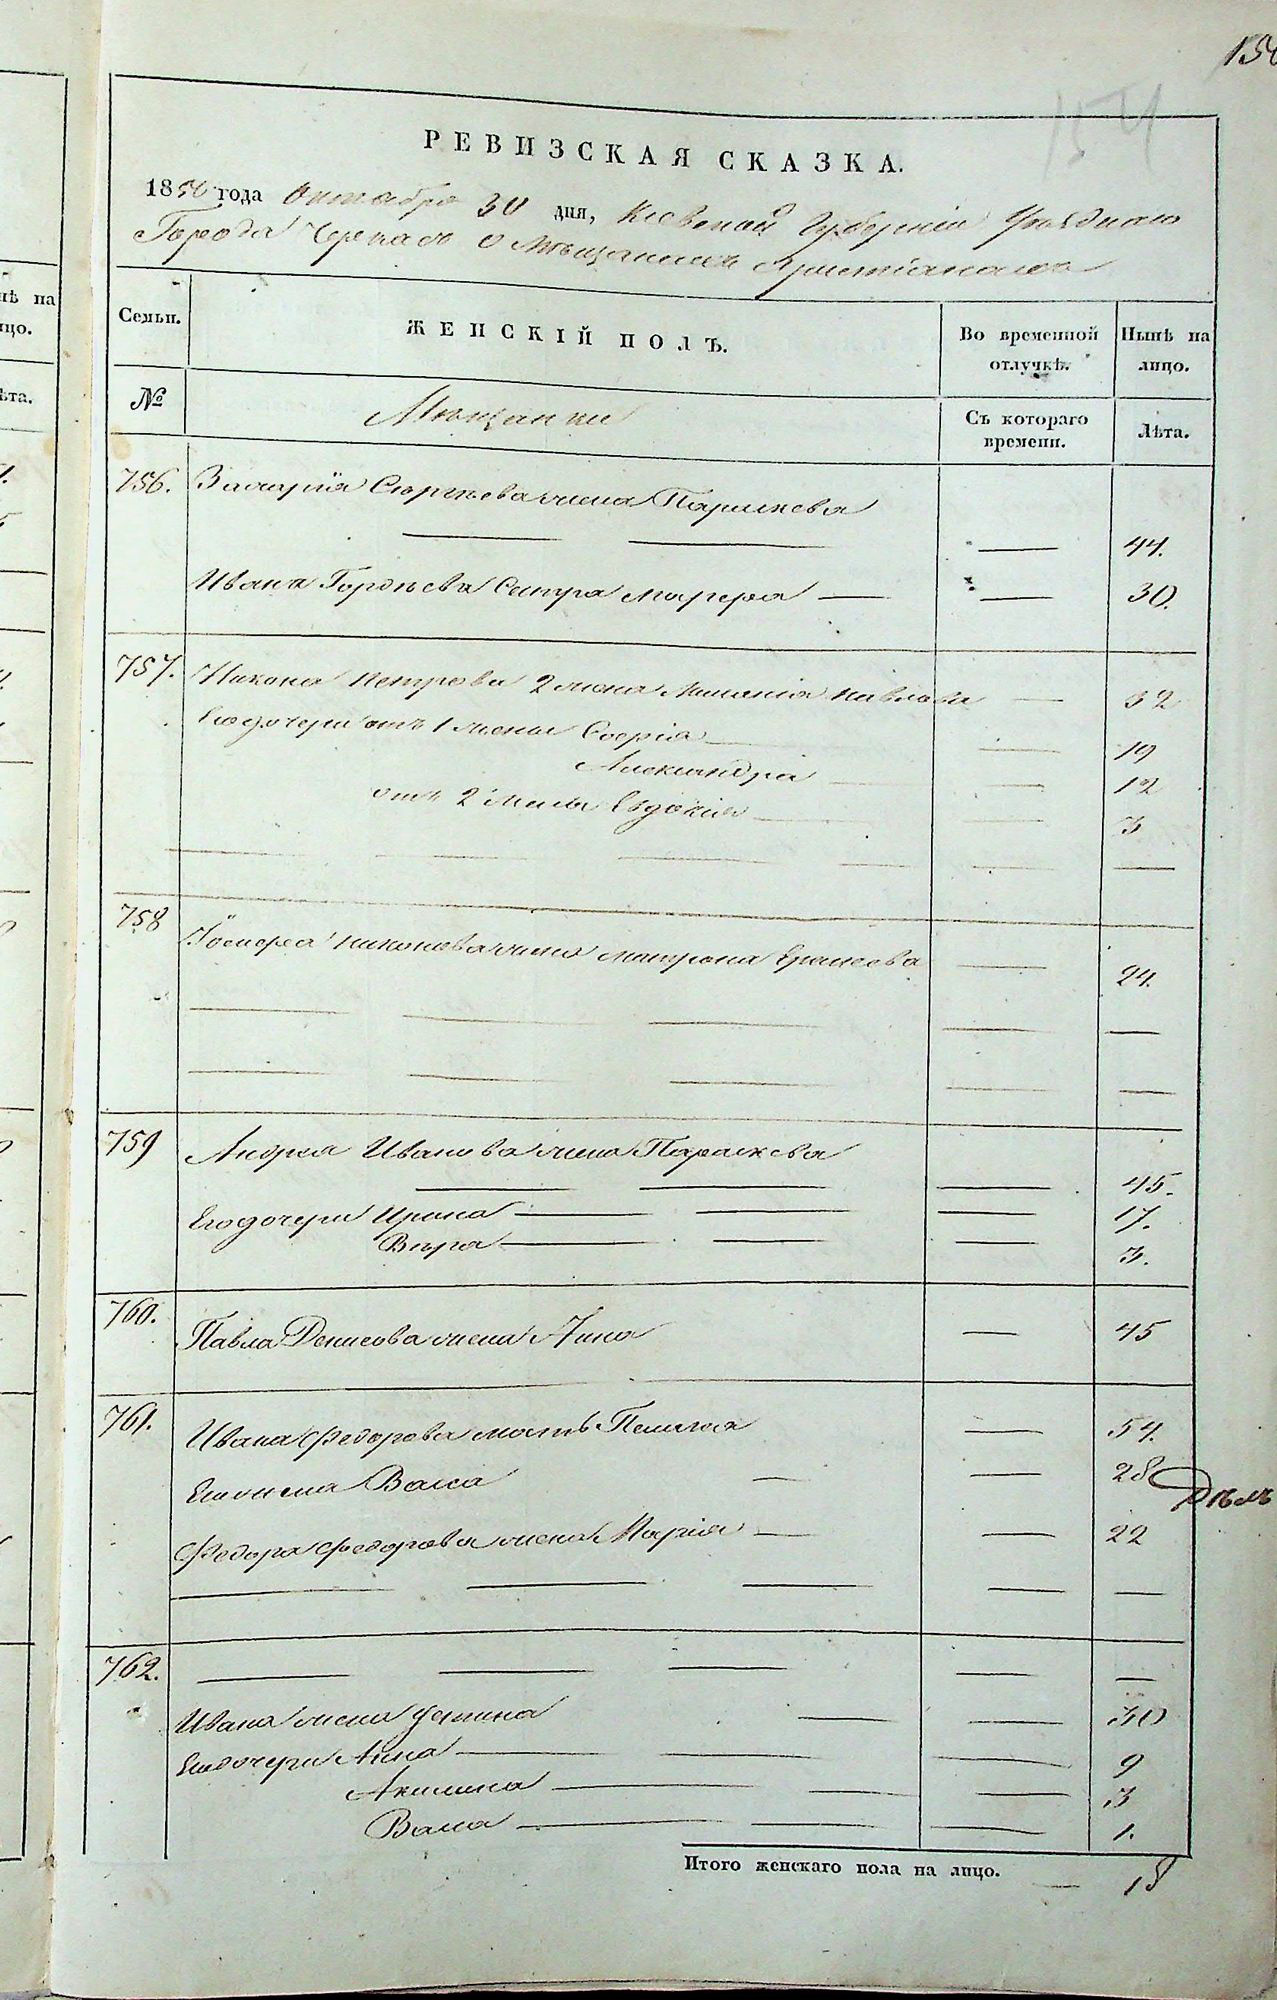 154
РЕВИЗСКАЯ СКАЗКА.
1850 года Октября 30 дня, Кіевской Губерніи Уѣзднаго
Города Черкасъ о Мѣщанахъ Христіанахъ
нѣ на
цо.
ѣта.
Семьи.
ЖЕНСКІЙ ПОЛЪ.
Во временной отлучкѣ.
Нынѣ на лицо.
№
Мѣщанки
Съ котораго времени.
Лѣта.
756. Захарія Сергѣева жена Параскева
— — — 44.
Ивана Гордѣева Сестра — — 30.
757. Никона Петрова 2 жена Меланія Павлова — 32
Его дочери отъ 1 жены Софія — — 19
Александра — — 12
отъ 2 жены Евдокія — — 3
— — — — — —
758 Іосифа Никонова жена Матрона — 24.
— — — — —
— — — — —
759 Андрея Иванова жена Параскева
— — — 45.
Его дочери Ирина — — — 17.
Вѣра — — — 3.
760. Павла Денисова жена Анна — 45
761. Ивана Федорова мать Пелагея — 54.
Его жена Васса — — 28
Федора Федорова жена Марія — — 22
— — — — —
762. — — — — —
Ивана жена Устина — — 30
Его дочери Анна — — — 9
Акилина — — — 3
Васса — — — 1.
Итого женскаго пола на лицо. — 18